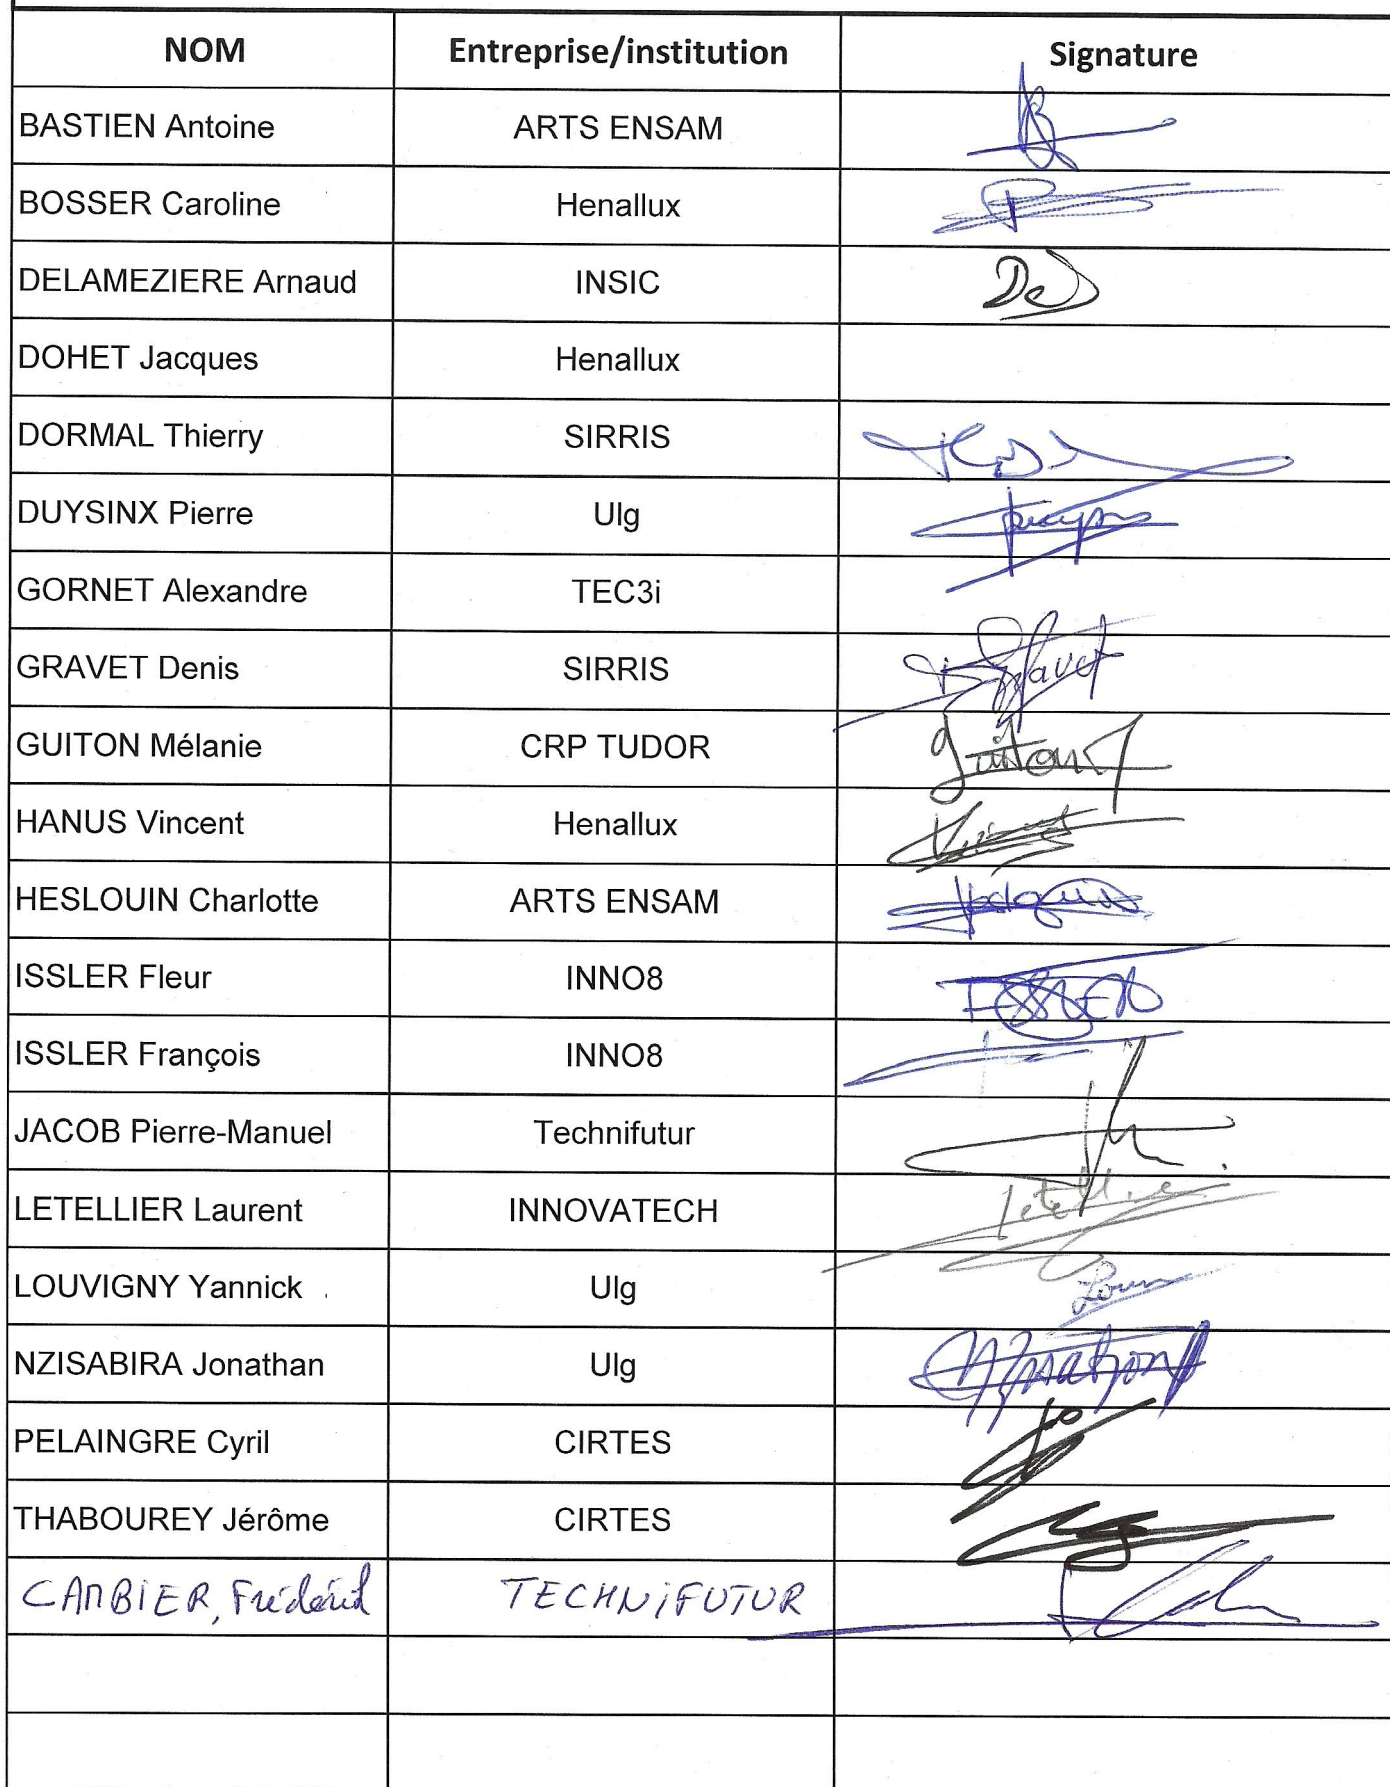 NOM Entreprise/institution Signature
BASTIEN Antoine ARTS ENSAM
BOSSER Caroline Henallux
DELAMEZIERE Arnaud INSIC
DOHET Jacques Henallux
DORMAL Thierry SIRRIS
DUYSINX Pierre Ulg
GORNET Alexandre TEC3i
GRAVET Denis SIRRIS
GUITON Mélanie CRP TUDOR Guiton
HANUS Vincent Henallux
HESLOUIN Charlotte ARTS ENSAM
ISSLER Fleur INNO8
ISSLER François INNO8
JACOB Pierre-Manuel Technifutur
LETELLIER Laurent INNOVATECH
LOUVIGNY Yannick Ulg
NZISABIRA Jonathan Ulg
PELAINGRE Cyril CIRTES
THABOUREY Jérôme CIRTES
CAMBIER, Frédérick TECHNiFUTUR